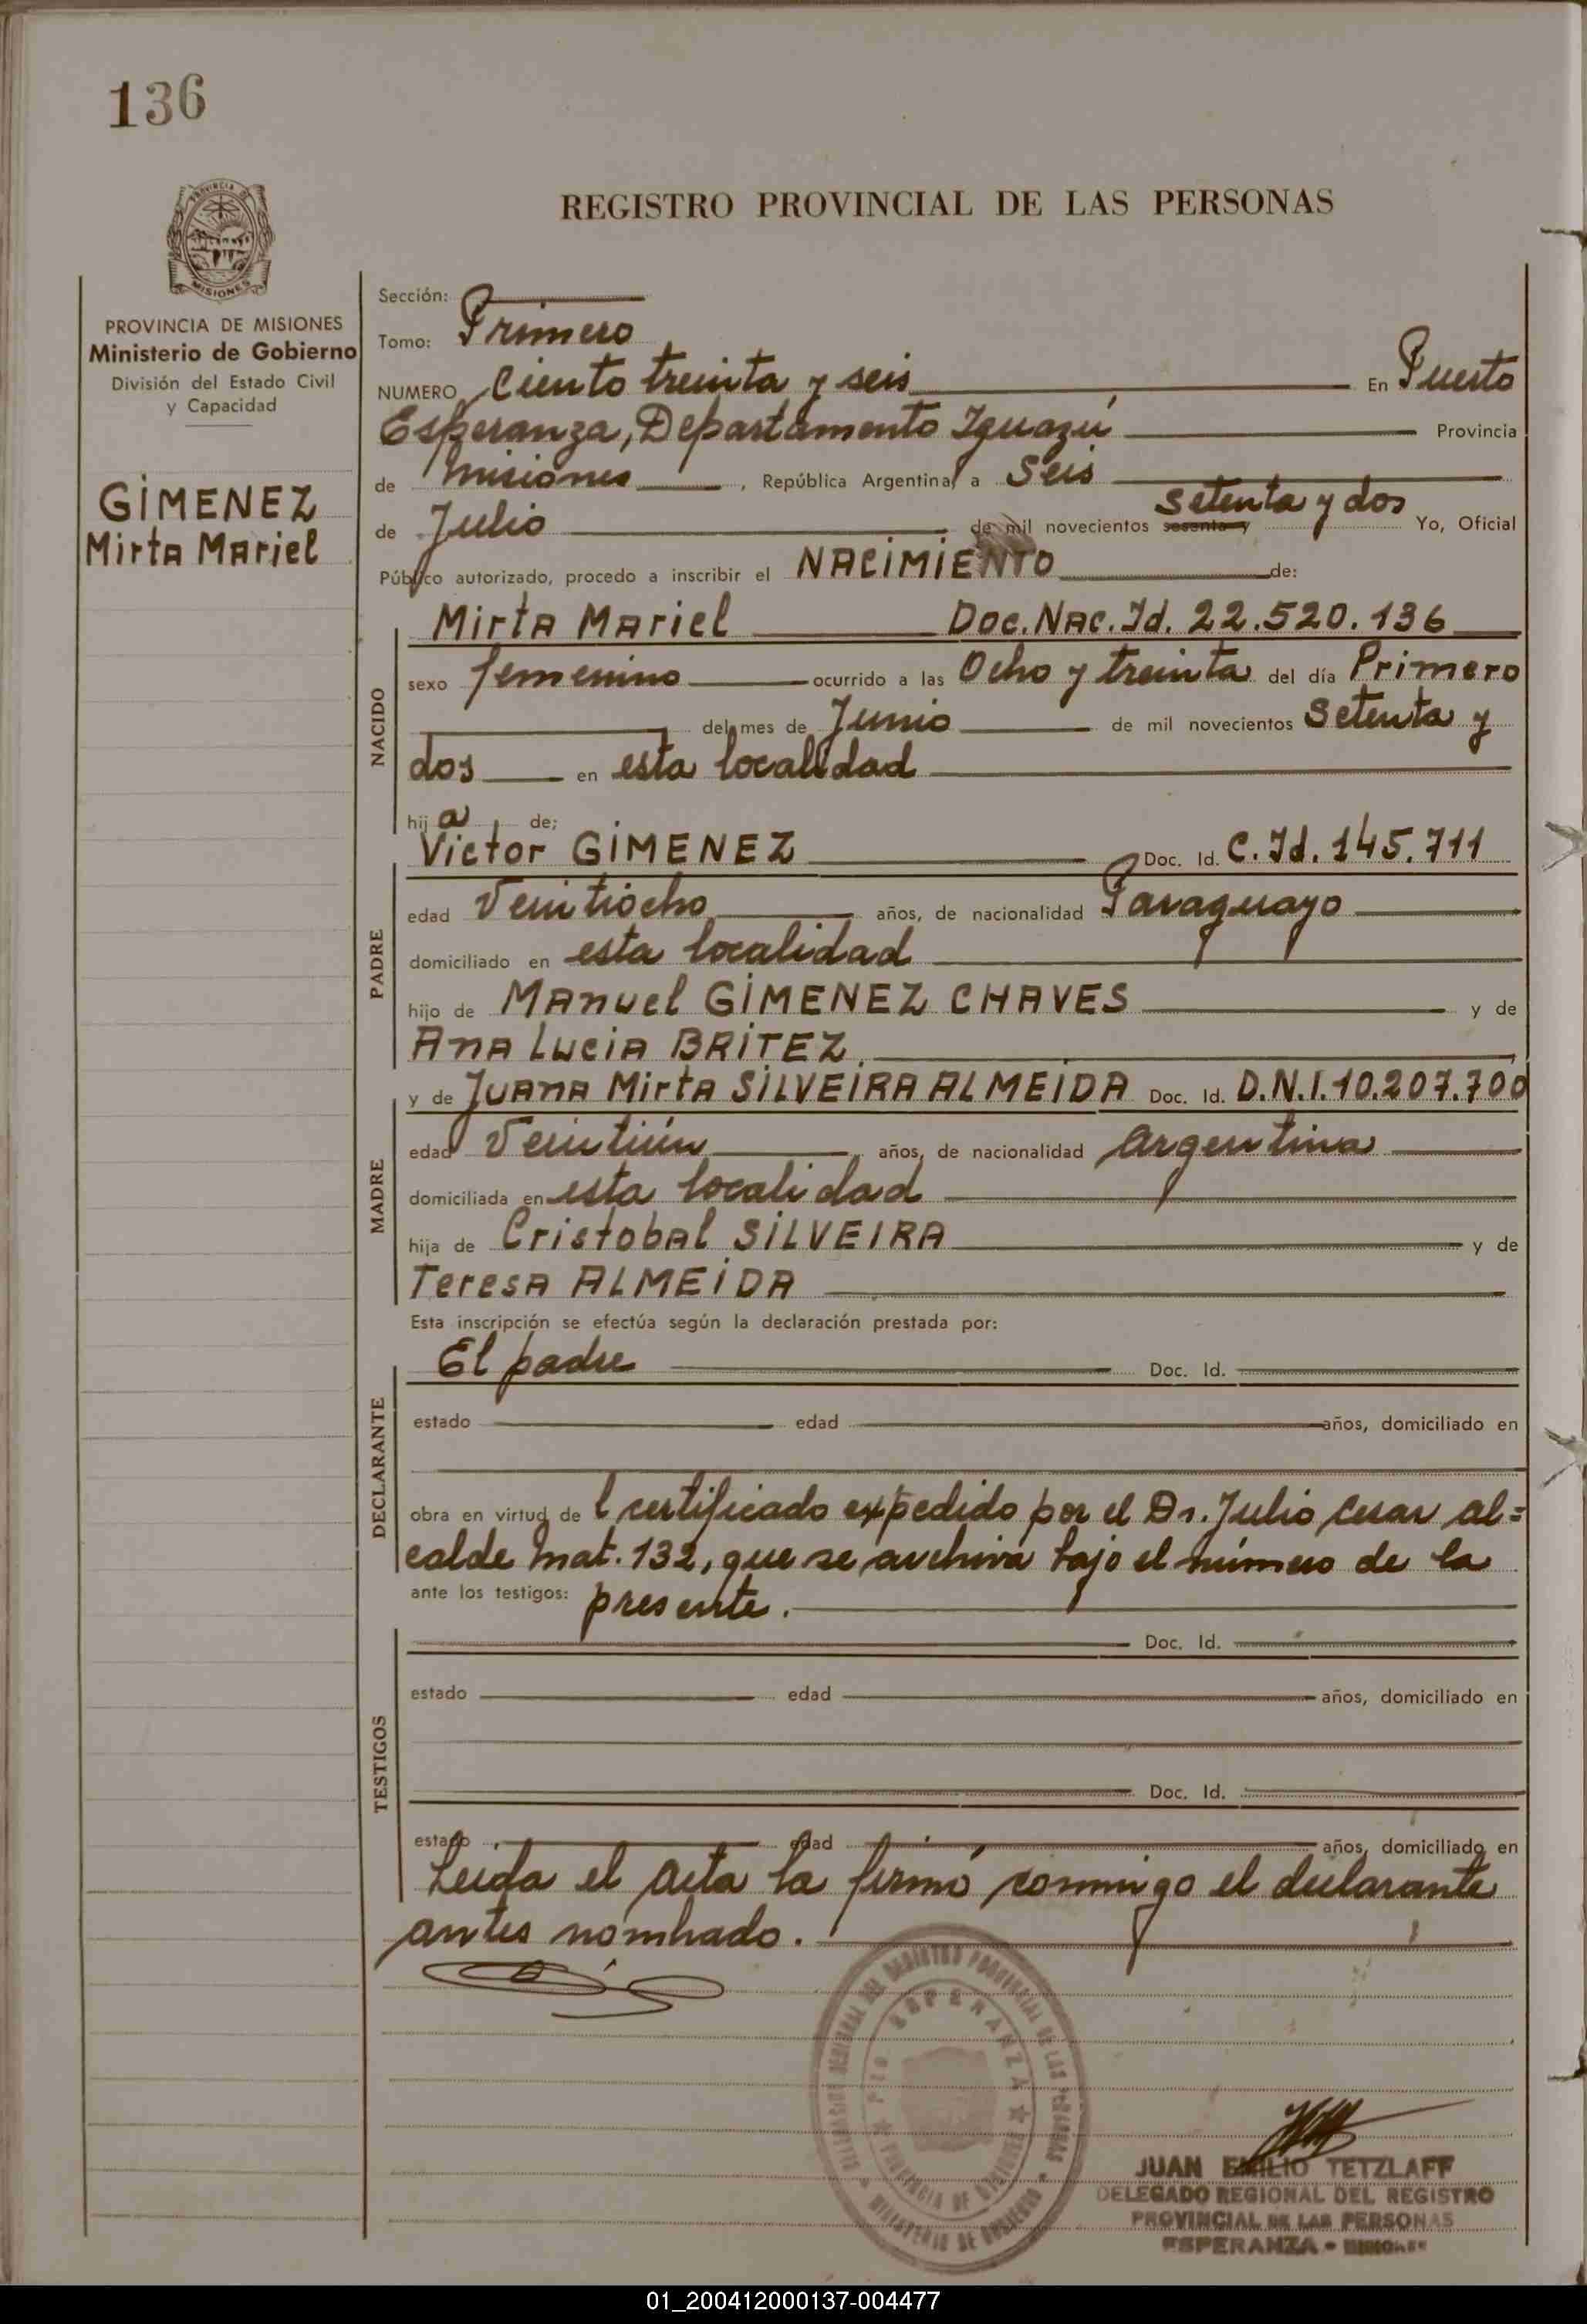 136
REGISTRO PROVINCIAL DE LAS PERSONAS
PROVINCIA DE
MISIONES
PROVINCIA DE MISIONES
Ministerio de Gobierno
División del Estado Civil
y Capacidad
GIMENEZ
Mirta Mariel
Sección:
Tomo: Primero
NUMERO Ciento treinta y seis En Puerto
Esperanza, Departamento Iguazú Provincia
de Misiones, República Argentina, a Seis
de Julio de mil novecientos sesenta y setenta y dos Yo, Oficial
Público autorizado, procedo a inscribir el NACIMIENTO de:
NACIDO
Mirta Mariel Doc. Nac. Id. 22.520.136
sexo femenino ocurrido a las Ocho y treinta del día Primero
del mes de Junio de mil novecientos Setenta y
dos en esta localidad
hija de;
PADRE
Victor GIMENEZ Doc. Id. C. Id. 145.711
edad Veintiocho años, de nacionalidad Paraguayo
domiciliado en esta localidad
hijo de Manuel GIMENEZ CHAVES y de
Ana Lucia BRITEZ
MADRE
y de Juana Mirta SILVEIRA ALMEIDA Doc. Id. D.N.I. 10.207.700
edad Veintiún años, de nacionalidad Argentina
domiciliada en esta localidad
hija de Cristobal SILVEIRA y de
Teresa ALMEIDA
Esta inscripción se efectúa según la declaración prestada por:
DECLARANTE
El padre Doc. Id.
estado edad años, domiciliado en
obra en virtud del certificado expedido por el Dr. Julio Cesar Al=
calde Mat. 132, que se archiva bajo el número de la
ante los testigos: presente.
TESTIGOS
Doc. Id.
estado edad años, domiciliado en
Doc. Id.
estado edad años, domiciliado en
Leida el Acta la firmó conmigo el declarante
antes nombrado.
DELEGACION REGIONAL DEL REGISTRO PROVINCIAL DE LAS PERSONAS
PTO ESPERANZA
PROVINCIA DE MISIONES
MINISTERIO DE GOBIERNO
JUAN EMILIO TETZLAFF
DELEGADO REGIONAL DEL REGISTRO
PROVINCIAL DE LAS PERSONAS
ESPERANZA - MISIONES
01_200412000137-004477